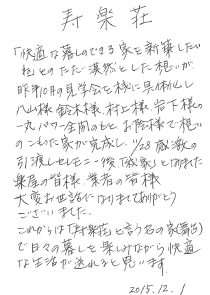 寿楽荘
「快適な暮しのできる家を新築したい」
とのただ漠然とした想いが
昨年10月の見学会を機に具体化し
八山様 鈴木様 村上様 岩下様の
一丸パワー全開のもとお陰様で想い
のこもった家が完成し、11/28感激の
引渡しセレモニー後「我家」となりました
楽屋の皆様 業者の皆様
大変お世話になりましてありがとう
ございました。
これからは「寿楽荘」と言う名の家(舞台)
で日々の暮しを楽しみながら快適
な生活が送れると思います。
2015.12.1